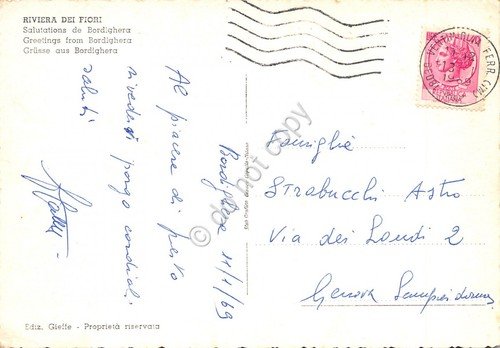 RIVIERA DEI FIORI
Salutations de Bordighera
Greetings from Bordighera
Grüsse aus Bordighera
Bordighera 11/1/69
Al piacere di presto
rivederti porgo cordiali
saluti
Famiglia
STRABUCCHI Astro
Via dei Landi 2
Genova Sampierdarena
Ediz. Gieffe - Proprietà riservata
do not copy